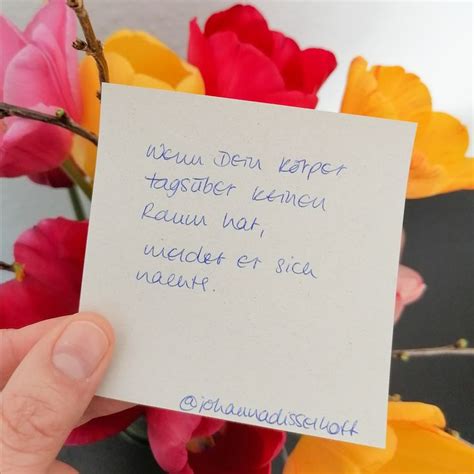 Wenn Dein Körper
tagsüber keinen
Raum hat,
meldet er sich
nachts.
@johannadisselhoff